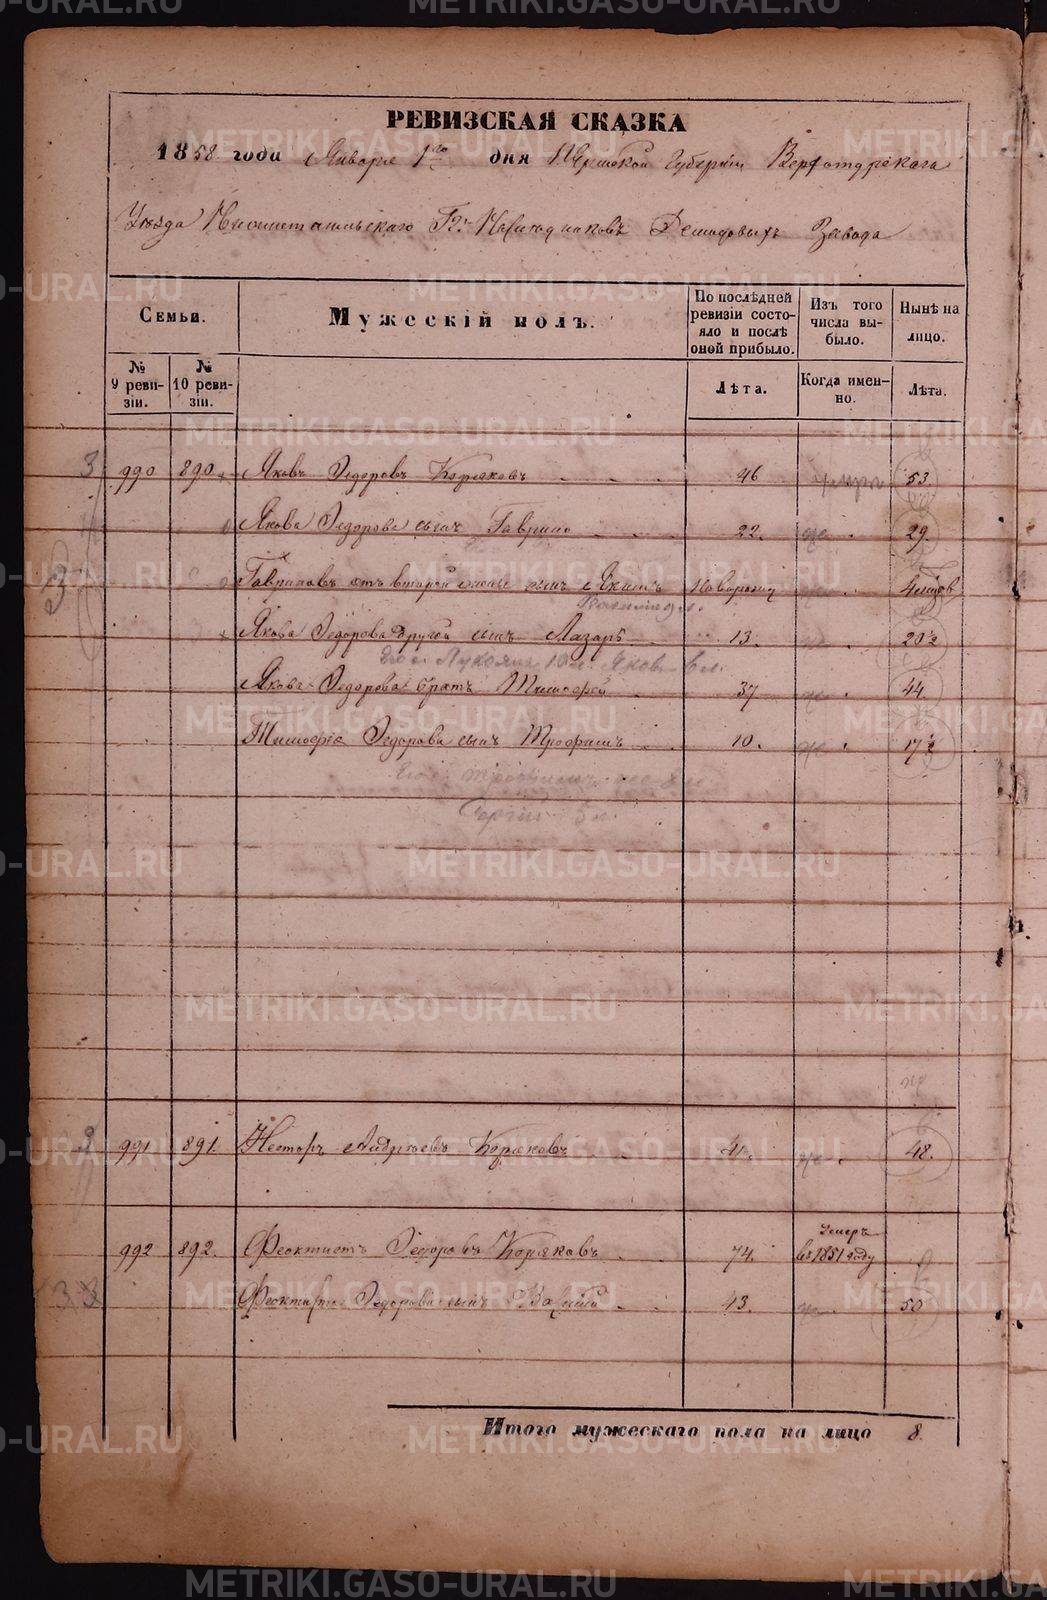 РЕВИЗСКАЯ СКАЗКА
1858 года Января 1го дня Пермской Губерніи Верхотурскаго
Уѣзда Нижнетагильскаго Гг. Наслѣдниковъ Демидовыхъ Завода
Семьи.
Мужескій полъ.
По послѣдней ревизіи состояло и послѣ оной прибыло.
Изъ того числа выбыло.
Нынѣ на лицо.
№ 9 ревизіи.
№ 10 ревизіи.
Лѣта.
Когда именно.
Лѣта.
990 890 Яковъ Федоровъ Коряковъ 46 53
Якова Федорова сынъ Гаврило 22. 29.
Гавриловъ отъ второй жены сынъ Новорожд
Якова Федорова другой сынъ Лазарь 13. 20½
его с. Лукоянъ 10 л. Яковъ 6 л.
Якова Федорова братъ Тимофей 37 44.
Тимофея Федорова сынъ Трофимъ 10. 17½
Сергій 5 л.
991 891. Несторъ Андреевъ Коряковъ 41. 48.
992 892. Феоктистъ Федоровъ Коряковъ 74. Умеръ въ 1851 году
Феоктиста Федорова сынъ 43. 50
Итого мужескаго пола на лицо 8.
METRIKI.GASO-URAL.RU